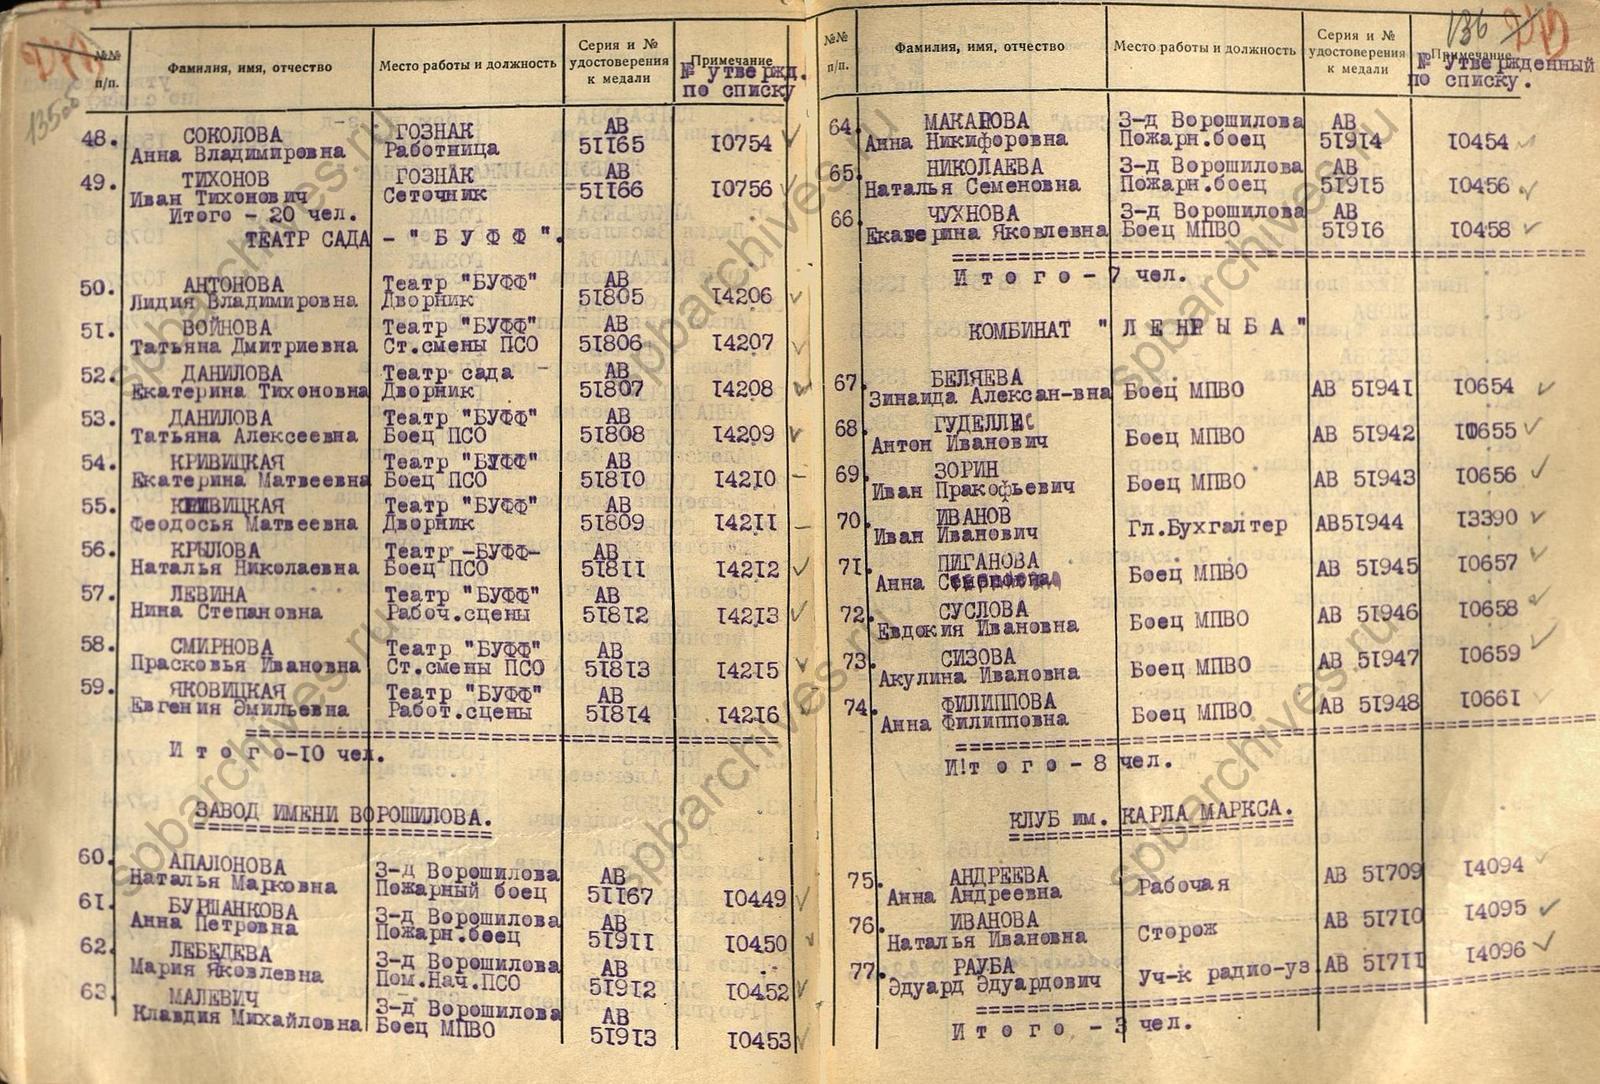 №№ п/п.
Фамилия, имя, отчество
Место работы и должность
Серия и № удостоверения к медали
Примечание
№ утвержд. по списку
48. СОКОЛОВА ГОЗНАК АВ
Анна Владимировна Работница 51165 10754
49. ТИХОНОВ ГОЗНАК АВ
Иван Тихонович Сеточник 51166 10756
Итого - 20 чел.
ТЕАТР САДА - "БУФФ".
50. АНТОНОВА Театр "БУФФ" АВ
Лидия Владимировна Дворник 51805 14206
51. ВОЙНОВА Театр "БУФФ" АВ
Татьяна Дмитриевна Ст.смены ПСО 51806 14207
52. ДАНИЛОВА Театр сада АВ
Екатерина Тихоновна Дворник 51807 14208
53. ДАНИЛОВА Театр "БУФФ" АВ
Татьяна Алексеевна Боец ПСО 51808 14209
54. КРИВИЦКАЯ Театр "БУФФ" АВ
Екатерина Матвеевна Боец ПСО 51810 14210
55. КРИВИЦКАЯ Театр "БУФФ" АВ
Феодосья Матвеевна Дворник 51809 14211
56. КРЫЛОВА Театр -БУФФ- АВ
Наталья Николаевна Боец ПСО 51811 14212
57. ЛЕВИНА Театр "БУФФ" АВ
Нина Степановна Рабоч.сцены 51812 14213
58. СМИРНОВА Театр "БУФФ" АВ
Прасковья Ивановна Ст.смены ПСО 51813 14215
59. ЯКОВИЦКАЯ Театр "БУФФ" АВ
Евгения Эмильевна Работ.сцены 51814 14216
Итого-10 чел.
ЗАВОД ИМЕНИ ВОРОШИЛОВА.
60. АПАЛОНОВА З-д Ворошилова АВ
Наталья Марковна Пожарный боец 51167 10449
61. БУРШАНКОВА З-д Ворошилова АВ
Анна Петровна Пожарн.боец 51911 10450
62. ЛЕБЕДЕВА З-д Ворошилова АВ
Мария Яковлевна Пом.Нач.ПСО 51912 10452
63. МАЛЕВИЧ З-д Ворошилова АВ
Клавдия Михайловна Боец МПВО 51913 10453
136
№№ п/п.
Фамилия, имя, отчество
Место работы и должность
Серия и № удостоверения к медали
Примечание
№ утвержденный по списку.
64. МАКАРОВА З-д Ворошилова АВ
Анна Никифоровна Пожарн.боец 51914 10454
65. НИКОЛАЕВА З-д Ворошилова АВ
Наталья Семеновна Пожарн.боец 51915 10456
66. ЧУХНОВА З-д Ворошилова АВ
Екатерина Яковлевна Боец МПВО 51916 10458
Итого - 7 чел.
КОМБИНАТ "ЛЕНРЫБА"
67. БЕЛЯЕВА
Зинаида Алексан-вна Боец МПВО АВ 51941 10654
68. ГУДЕЛЛЕС
Антон Иванович Боец МПВО АВ 51942 10655
69. ЗОРИН
Иван Пракофьевич Боец МПВО АВ 51943 10656
70. ИВАНОВ
Иван Иванович Гл.Бухгалтер АВ51944 13390
71. ПИГАНОВА
Анна Боец МПВО АВ 51945 10657
72. СУСЛОВА
Евдокия Ивановна Боец МПВО АВ 51946 10658
73. СИЗОВА
Акулина Ивановна Боец МПВО АВ 51947 10659
74. ФИЛИППОВА
Анна Филипповна Боец МПВО АВ 51948 10661
И!того - 8 чел.
КЛУБ им. КАРЛА МАРКСА.
75. АНДРЕЕВА
Анна Андреевна Рабочая АВ 51709 14094
76. ИВАНОВА
Наталья Ивановна Сторож АВ 51710 14095
77. РАУБА
Эдуард Эдуардович Уч-к радио-уз. АВ 51711 14096
Итого - 3 чел.
spbarchives.ru
spbarchives.ru
spbarchives.ru
spbarchives.ru
spbarchives.ru
spbarchives.ru